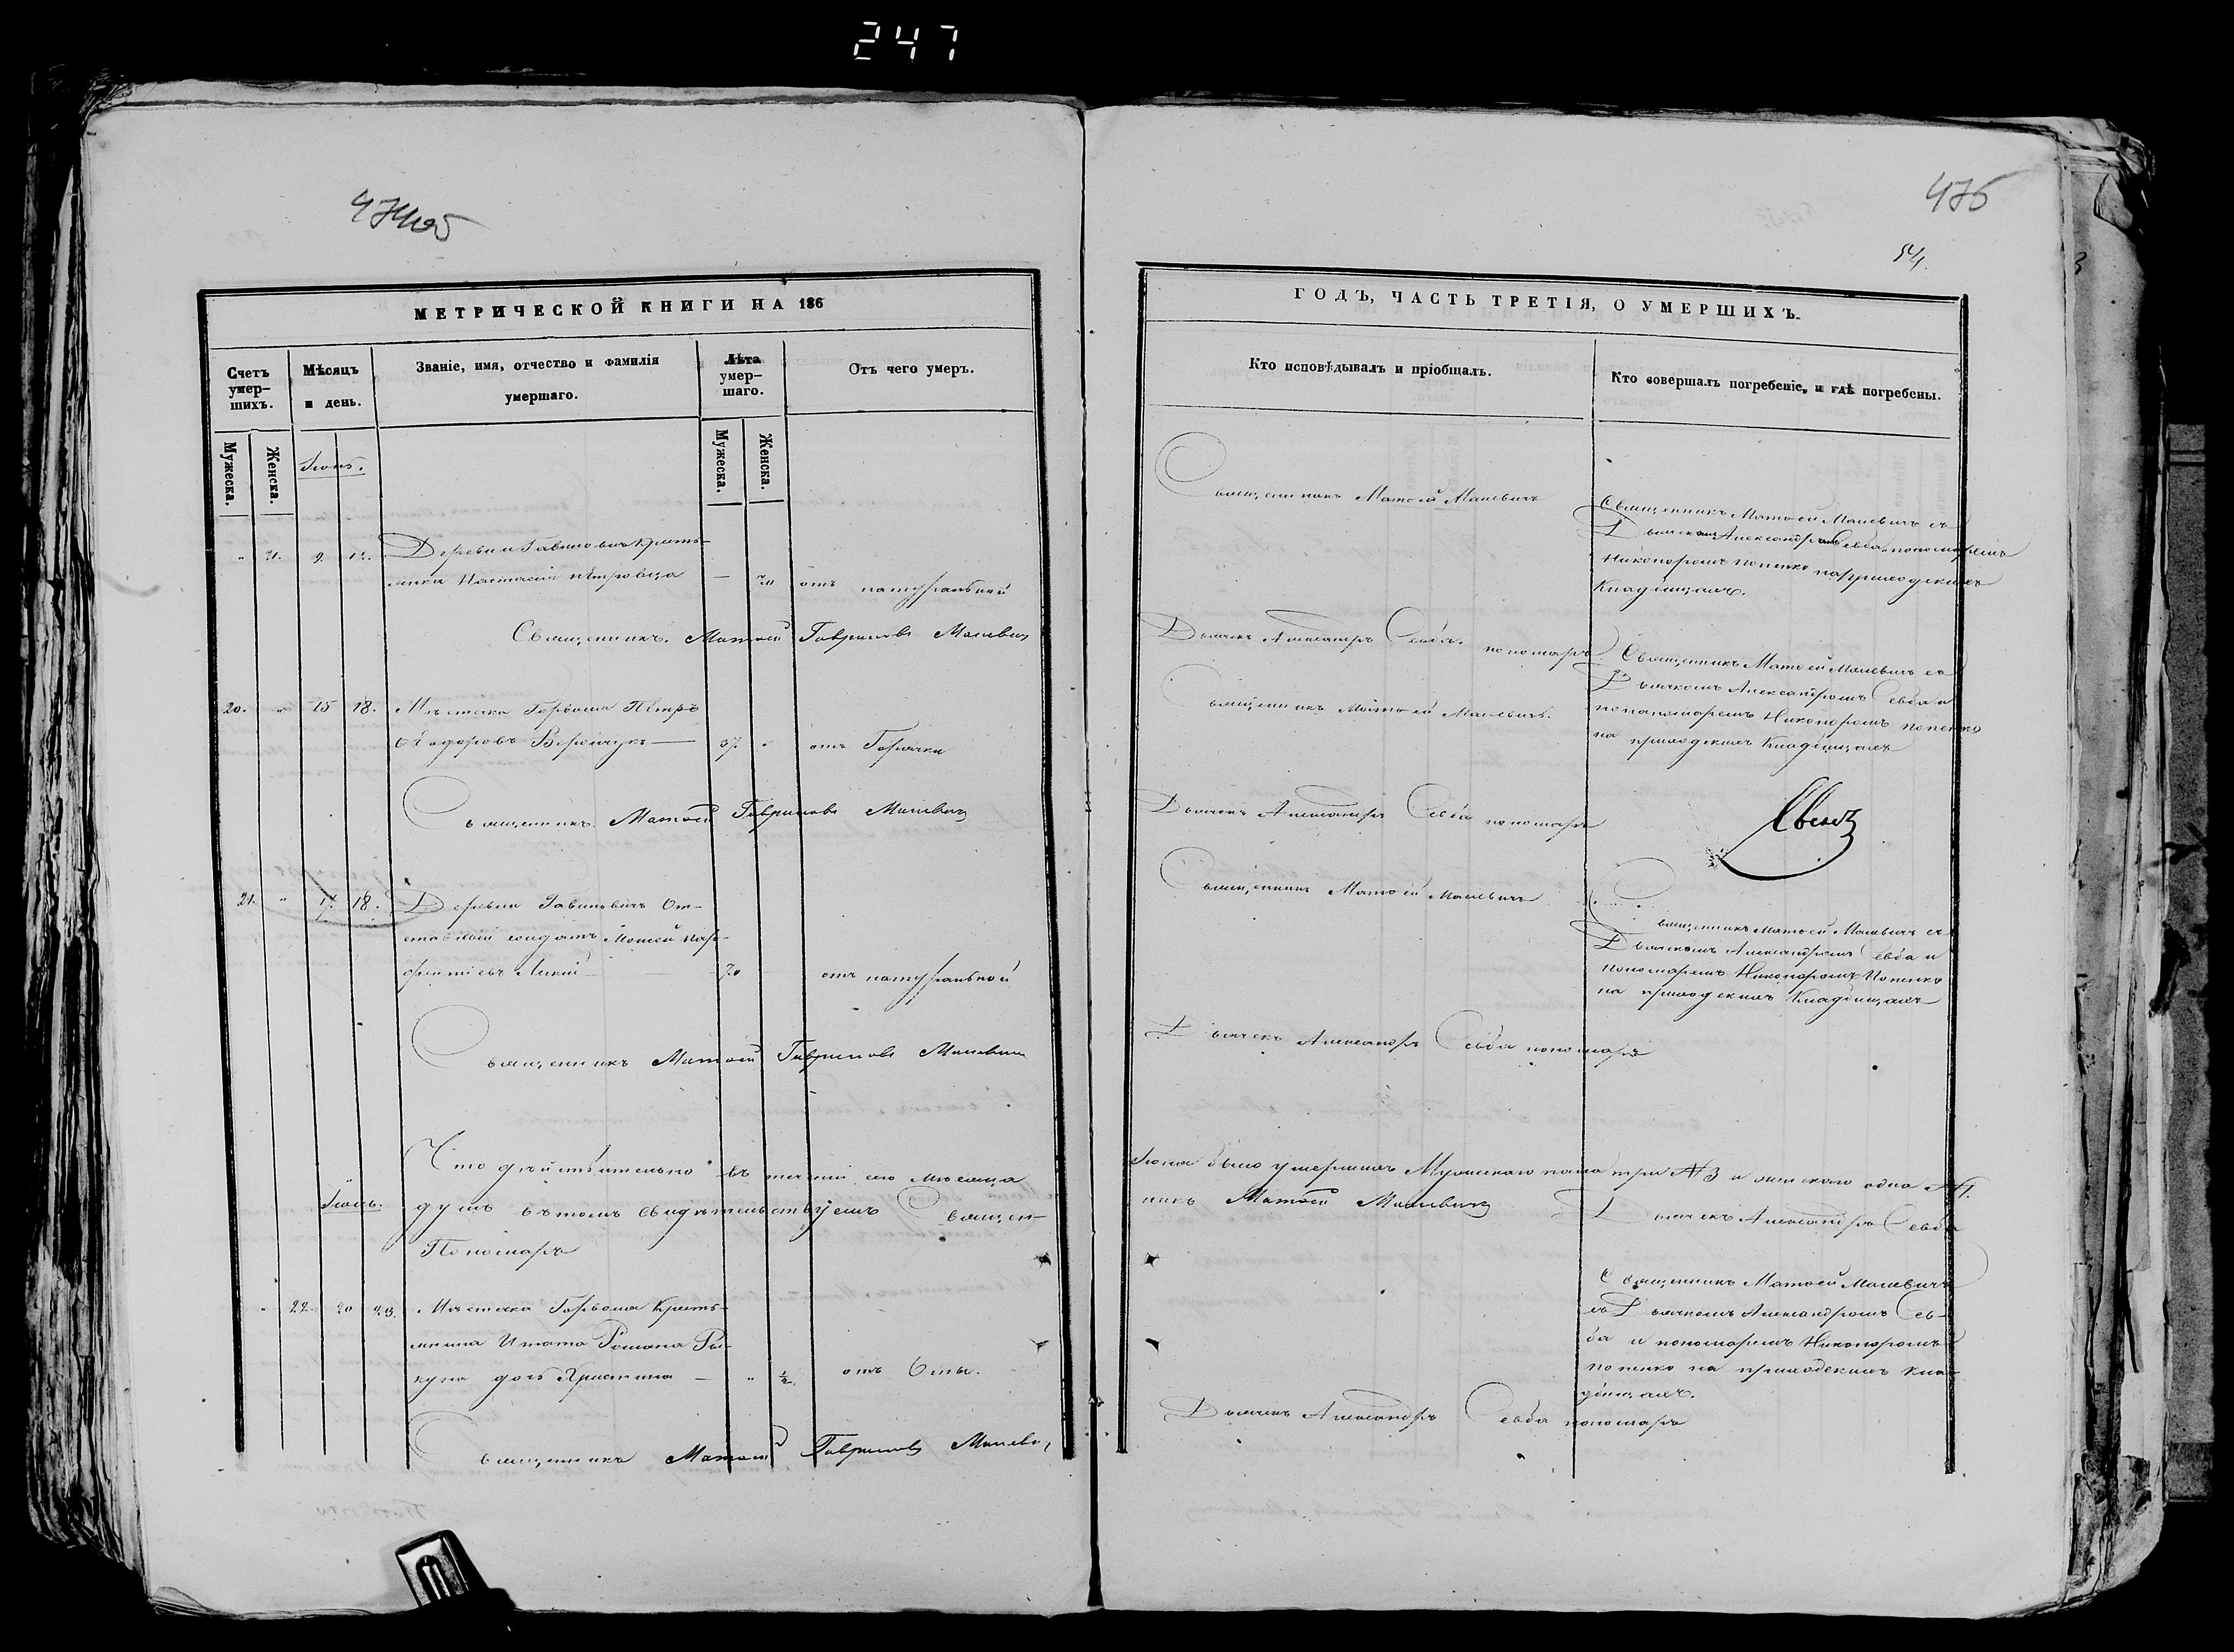 247
474об
475
54.
МЕТРИЧЕСКОЙ КНИГИ НА 186
Счетъ умер-шихъ.
Мѣсяцъ и день.
Званіе, имя, отчество и фамилія умершаго.
Лѣта умер-шаго.
Отъ чего умеръ.
Мужеска.
Женска.
Мужеска.
Женска.
Іюнь.
" 21. 9. 12. Деревни Гавиновичъ Кресть-
янка Настасія Петровца — 70 отъ натуральной
Священникъ Матѳей Гавриловъ Малевич
20. " 15 18. Мѣстечка Горваля Петръ
Ѳеодоровъ — 67. " отъ Горячки
Священникъ Матѳей Гавриловъ Малевич
21. " 17 18. Деревни Гавиновичъ От-
ставный солдатъ Моисей Пар-
фентіевъ — 70 отъ натуральной
Священникъ Матѳей Гавриловъ Малевич
Что дѣйствительно въ теченіи сего мѣсяца
Іюль. душъ въ томъ свидѣтельствуемъ Священ-
Пономарь
" 22. 20 23. Мѣстечка Горваля Кресть-
янина Игната Романа
дочь Христина — " ½ отъ Оспы.
Священникъ Матѳей Гавриловъ Малевич
ГОДЪ, ЧАСТЬ ТРЕТІЯ, О УМЕРШИХЪ.
Кто исповѣдывалъ и пріобщалъ.
Кто совершалъ погребеніе, и гдѣ погребены.
Священникъ Матѳей Малевичъ
Священникъ Матѳей Малевичъ съ
Дьячкомъ Александромъ Севба и пономаремъ
Никифоромъ Попенко на приходскихъ
Кладбищахъ.
Дьячекъ Александръ Севба. пономарь
Священникъ Матѳей Малевичъ.
Священникъ Матѳей Малевичъ съ
Дьячкомъ Александромъ Севба и
пономаремъ Никифоромъ Попенко
на приходскихъ Кладбищахъ
Дьячекъ Александръ Севба пономарь
Священникъ Матѳей Малевичъ
Священникъ Матѳей Малевичъ съ
Дьячкомъ Александромъ Севба и
пономаремъ Никифоромъ Попенко
на приходскихъ Кладбищахъ
Дьячекъ Александръ Севба пономарь
Іюня было умершихъ Мужескаго пола три №3 и женскаго одна №1.
никъ Матѳей Малевичъ Дьячекъ Александръ Севба
Священникъ Матѳей Малевичъ
съ Дьячкомъ Александромъ Сев-
ба и пономаремъ Никифоромъ
Попенко на приходскихъ Кла-
дбищахъ.
Дьячекъ Александръ Севба пономарь